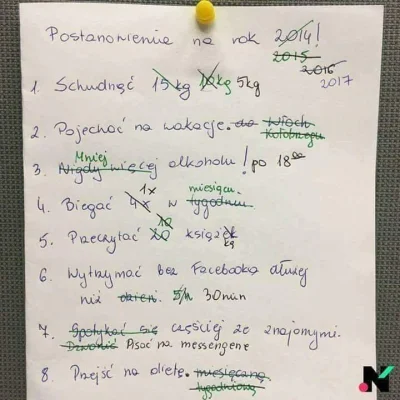 Postanowienia na rok 2014!
2015
2016
2017
1. Schudnąć 15 kg 10 kg 5kg
2. Pojechać na wakacje. do Włoch
Kołobrzegu
Mniej
3. Nigdy więcej alkoholu! po 18⁰⁰
1x miesiącu
4. Biegać 4x w tygodniu
10
5. Przeczytać 20 książek
kę
6. Wytrzymać bez Facebooka dłużej
niż dzień. 5h 30min
7. Spotykać się częściej ze znajomymi.
Dzwonić Pisać na messengerze
8. Przejść na dietę. miesięczną
tygodniową